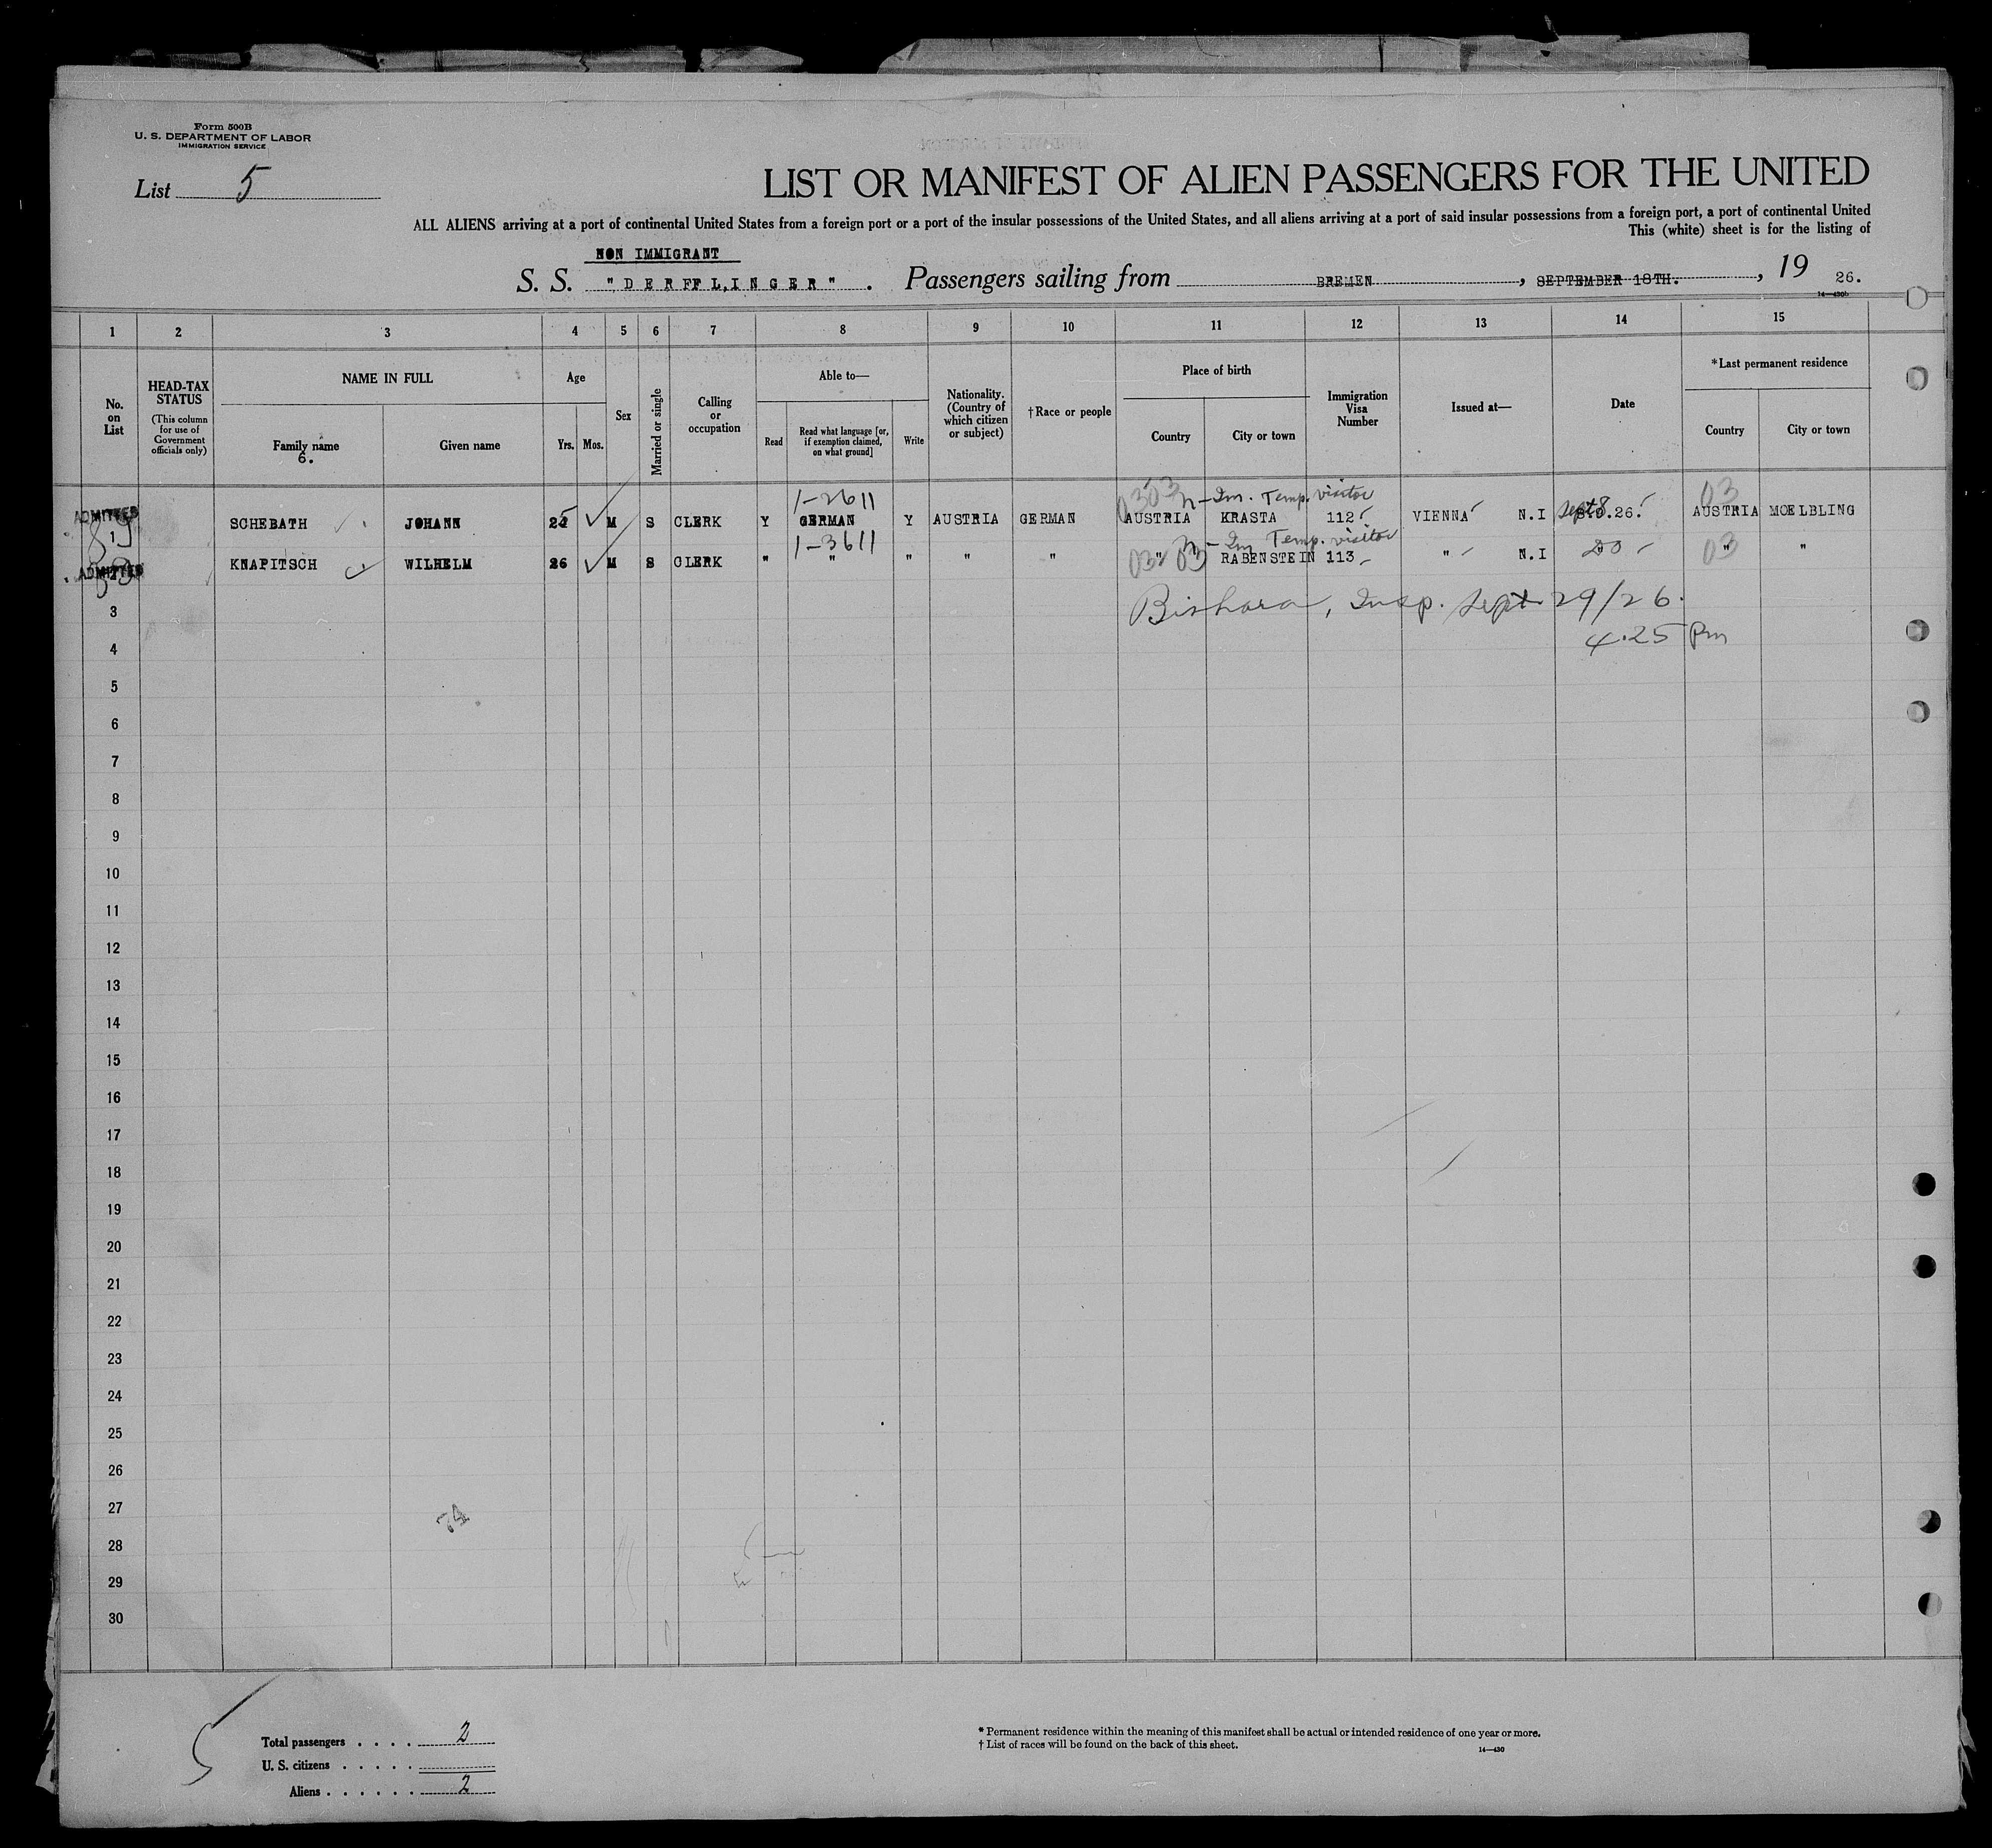 Form 500B
U. S. DEPARTMENT OF LABOR
IMMIGRATION SERVICE
List 5
LIST OR MANIFEST OF ALIEN PASSENGERS FOR THE UNITED
ALL ALIENS arriving at a port of continental United States from a foreign port or a port of the insular possessions of the United States, and all aliens arriving at a port of said insular possessions from a foreign port, a port of continental United
This (white) sheet is for the listing of
NON IMMIGRANT
S. S. "DERFFLINGER". Passengers sailing from BREMEN, SEPTEMBER 18TH., 19 26.
14—430b
1 2 3 4 5 6 7 8 9 10 11 12 13 14 15
No. on List
HEAD-TAX STATUS
(This column for use of Government officials only)
NAME IN FULL
Family name
6.
Given name
Age
Yrs. Mos.
Sex
Married or single
Calling or occupation
Able to—
Read
Read what language [or, if exemption claimed, on what ground]
Write
Nationality. (Country of which citizen or subject)
†Race or people
Place of birth
Country
City or town
Immigration Visa Number
Issued at—
Date
*Last permanent residence
Country
City or town
1-2611 0303 n-Im. Temp. visitor 03
ADMITTED
1 SCHEBATH JOHANN 25 M S CLERK Y GERMAN Y AUSTRIA GERMAN AUSTRIA KRASTA 112 VIENNA N.I Sept 8.26. AUSTRIA MOELBLING
1-3611 n-Im Temp. visitor
ADMITTED
KNAPITSCH WILHELM 26 M S CLERK " " " " " " 03 RABENSTEIN 113 " N.I DO 03 " "
Bishara, Insp. Sept 29/26.
4.25 Pm
3
4
5
6
7
8
9
10
11
12
13
14
15
16
17
18
19
20
21
22
23
24
25
26
27
74
28
29
30
5
Total passengers . . . . 2
U. S. citizens . . . . .
Aliens . . . . . . 2
* Permanent residence within the meaning of this manifest shall be actual or intended residence of one year or more.
† List of races will be found on the back of this sheet.
14—430